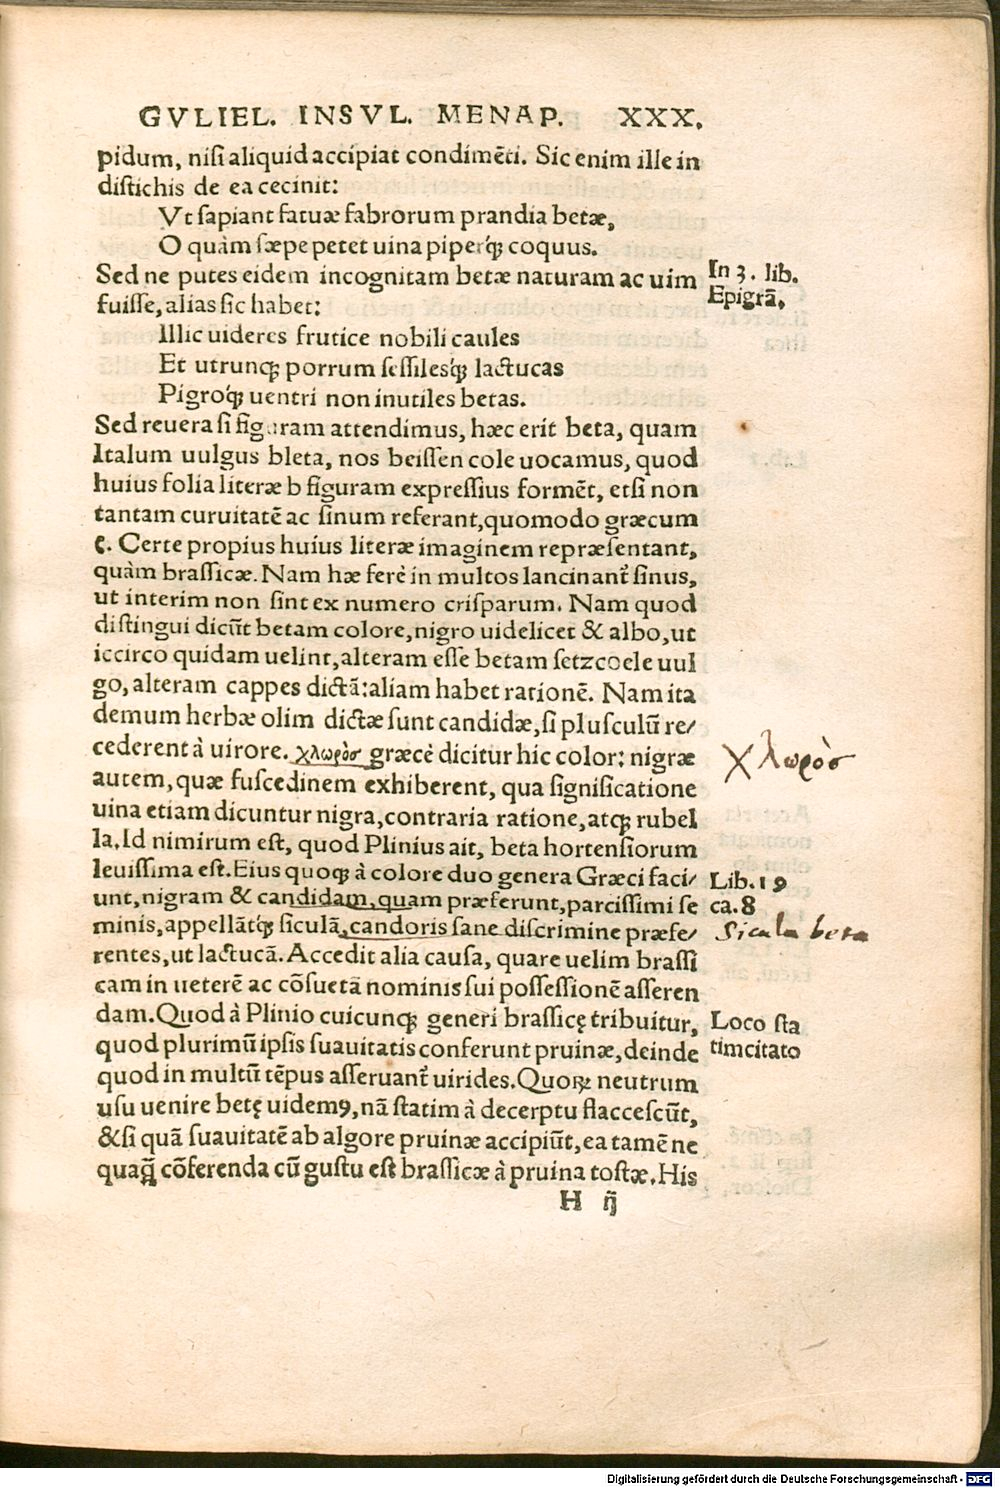 GVLIEL. INSVL. MENAP. XXX.
pidum, nisi aliquid accipiat condimēti. Sic enim ille in
distichis de ea cecinit:
Vt sapiant fatuæ fabrorum prandia betæ,
O quàm sæpe petet uina piperq́ꝫ coquus.
Sed ne putes eidem incognitam betæ naturam ac uim
In 3. lib.
fuisse, alias sic habet:
Epigrā.
Illic uideres frutice nobili caules
Et utrunqꝫ porrum sessilesq́ꝫ lactucas
Pigroq́ꝫ uentri non inutiles betas.
Sed reuera si figuram attendimus, hæc erit beta, quam
Italum uulgus bleta, nos beissen cole uocamus, quod
huius folia literæ b figuram expressius formēt, etsi non
tantam curuitatē ac sinum referant, quomodo græcum
ϐ. Certe propius huius literæ imaginem repræsentant,
quàm brassicæ. Nam hæ ferè in multos lancinant᷑ sinus,
ut interim non sint ex numero crisparum. Nam quod
distingui dicūt betam colore, nigro uidelicet & albo, ut
iccirco quidam uelint, alteram esse betam setzcoele uul
go, alteram cappes dictā: aliam habet rationē. Nam ita
demum herbæ olim dictæ sunt candidæ, si plusculū re/
cederent à uirore. χλωρὸσ græcè dicitur hic color: nigræ
χλωρὸσ
autem, quæ fuscedinem exhiberent, qua significatione
uina etiam dicuntur nigra, contraria ratione, atqꝫ rubel
la. Id nimirum est, quod Plinius ait, beta hortensiorum
leuissima est. Eius quoqꝫ à colore duo genera Græci faci/
Lib. 19
unt, nigram & candidam, quam præferunt, parcissimi se
ca. 8
minis, appellātq́ꝫ siculā, candoris sane discrimine præfe/
Sicula beta
rentes, ut lactucā. Accedit alia causa, quare uelim brassi
cam in ueterē ac cōsuetā nominis sui possessionē asseren
dam. Quod à Plinio cuicunqꝫ generi brassicę tribuitur,
Loco sta
quod plurimū ipsis suauitatis conferunt pruinæ, deinde
tim citato
quod in multū tēpus asseruant᷑ uirides. Quoꝝ neutrum
usu uenire betę uidemꝰ, nā statim à decerptu flaccescūt,
& si quā suauitatē ab algore pruinæ accipiūt, ea tamē ne
quaq̄ cōferenda cū gustu est brassicæ à pruina tostæ. His
H ij
Digitalisierung gefördert durch die Deutsche Forschungsgemeinschaft - DFG